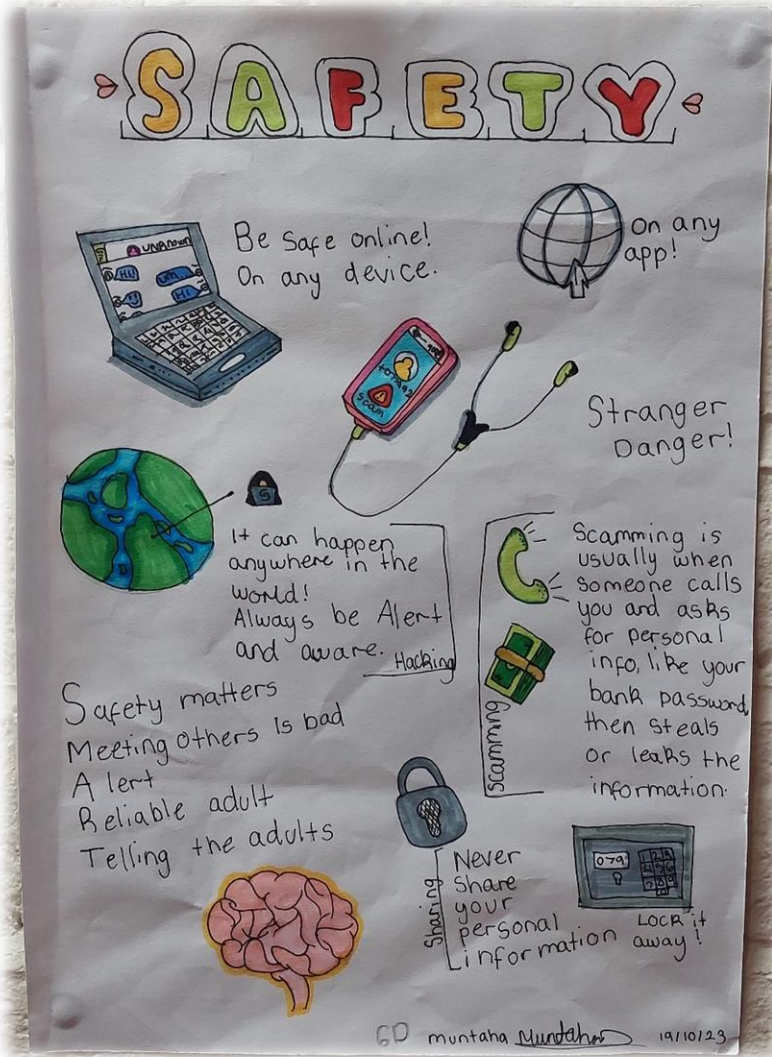 SAFETY
UNKNOWN
Hi!
um...
Hi
Be safe online!
On any device.
On any
app!
scam
Stranger
Danger!
S
It can happen
anywhere in the
world!
Always be Alert
and aware.
Hacking
Scamming is
usually when
someone calls
you and asks
for personal
info, like your
bank password,
then steals
or leaks the
information.
Scamming
Safety matters
Meeting others Is bad
Alert
Reliable adult
Telling the adults
Sharing
Never
Share
your
personal
information
079
Lock it
away!
6D muntaha Muntaha 19/10/23